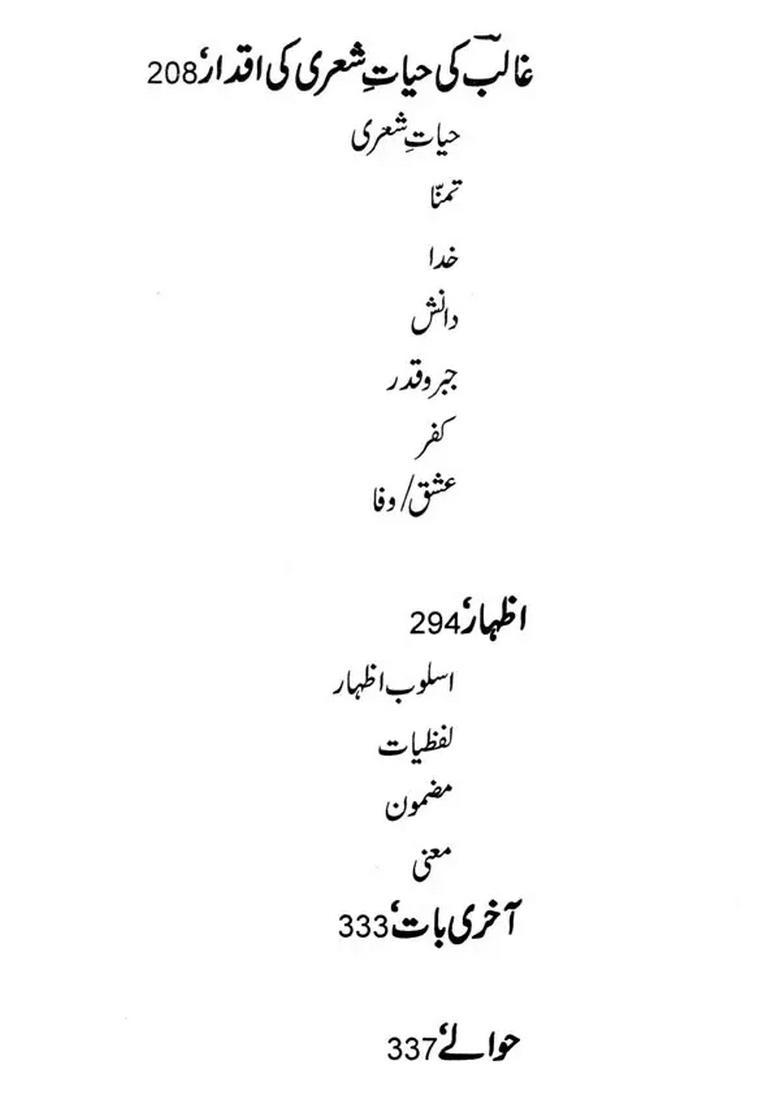 غالبؔ کی حیاتِ شعری کی اقدار، 208
حیاتِ شعری
تمنّا
خدا
دانش
جبر و قدر
کفر
عشق / وفا
اظہار، 294
اسلوب اظہار
لفظیات
مضمون
معنی
آخری بات، 333
حوالے، 337